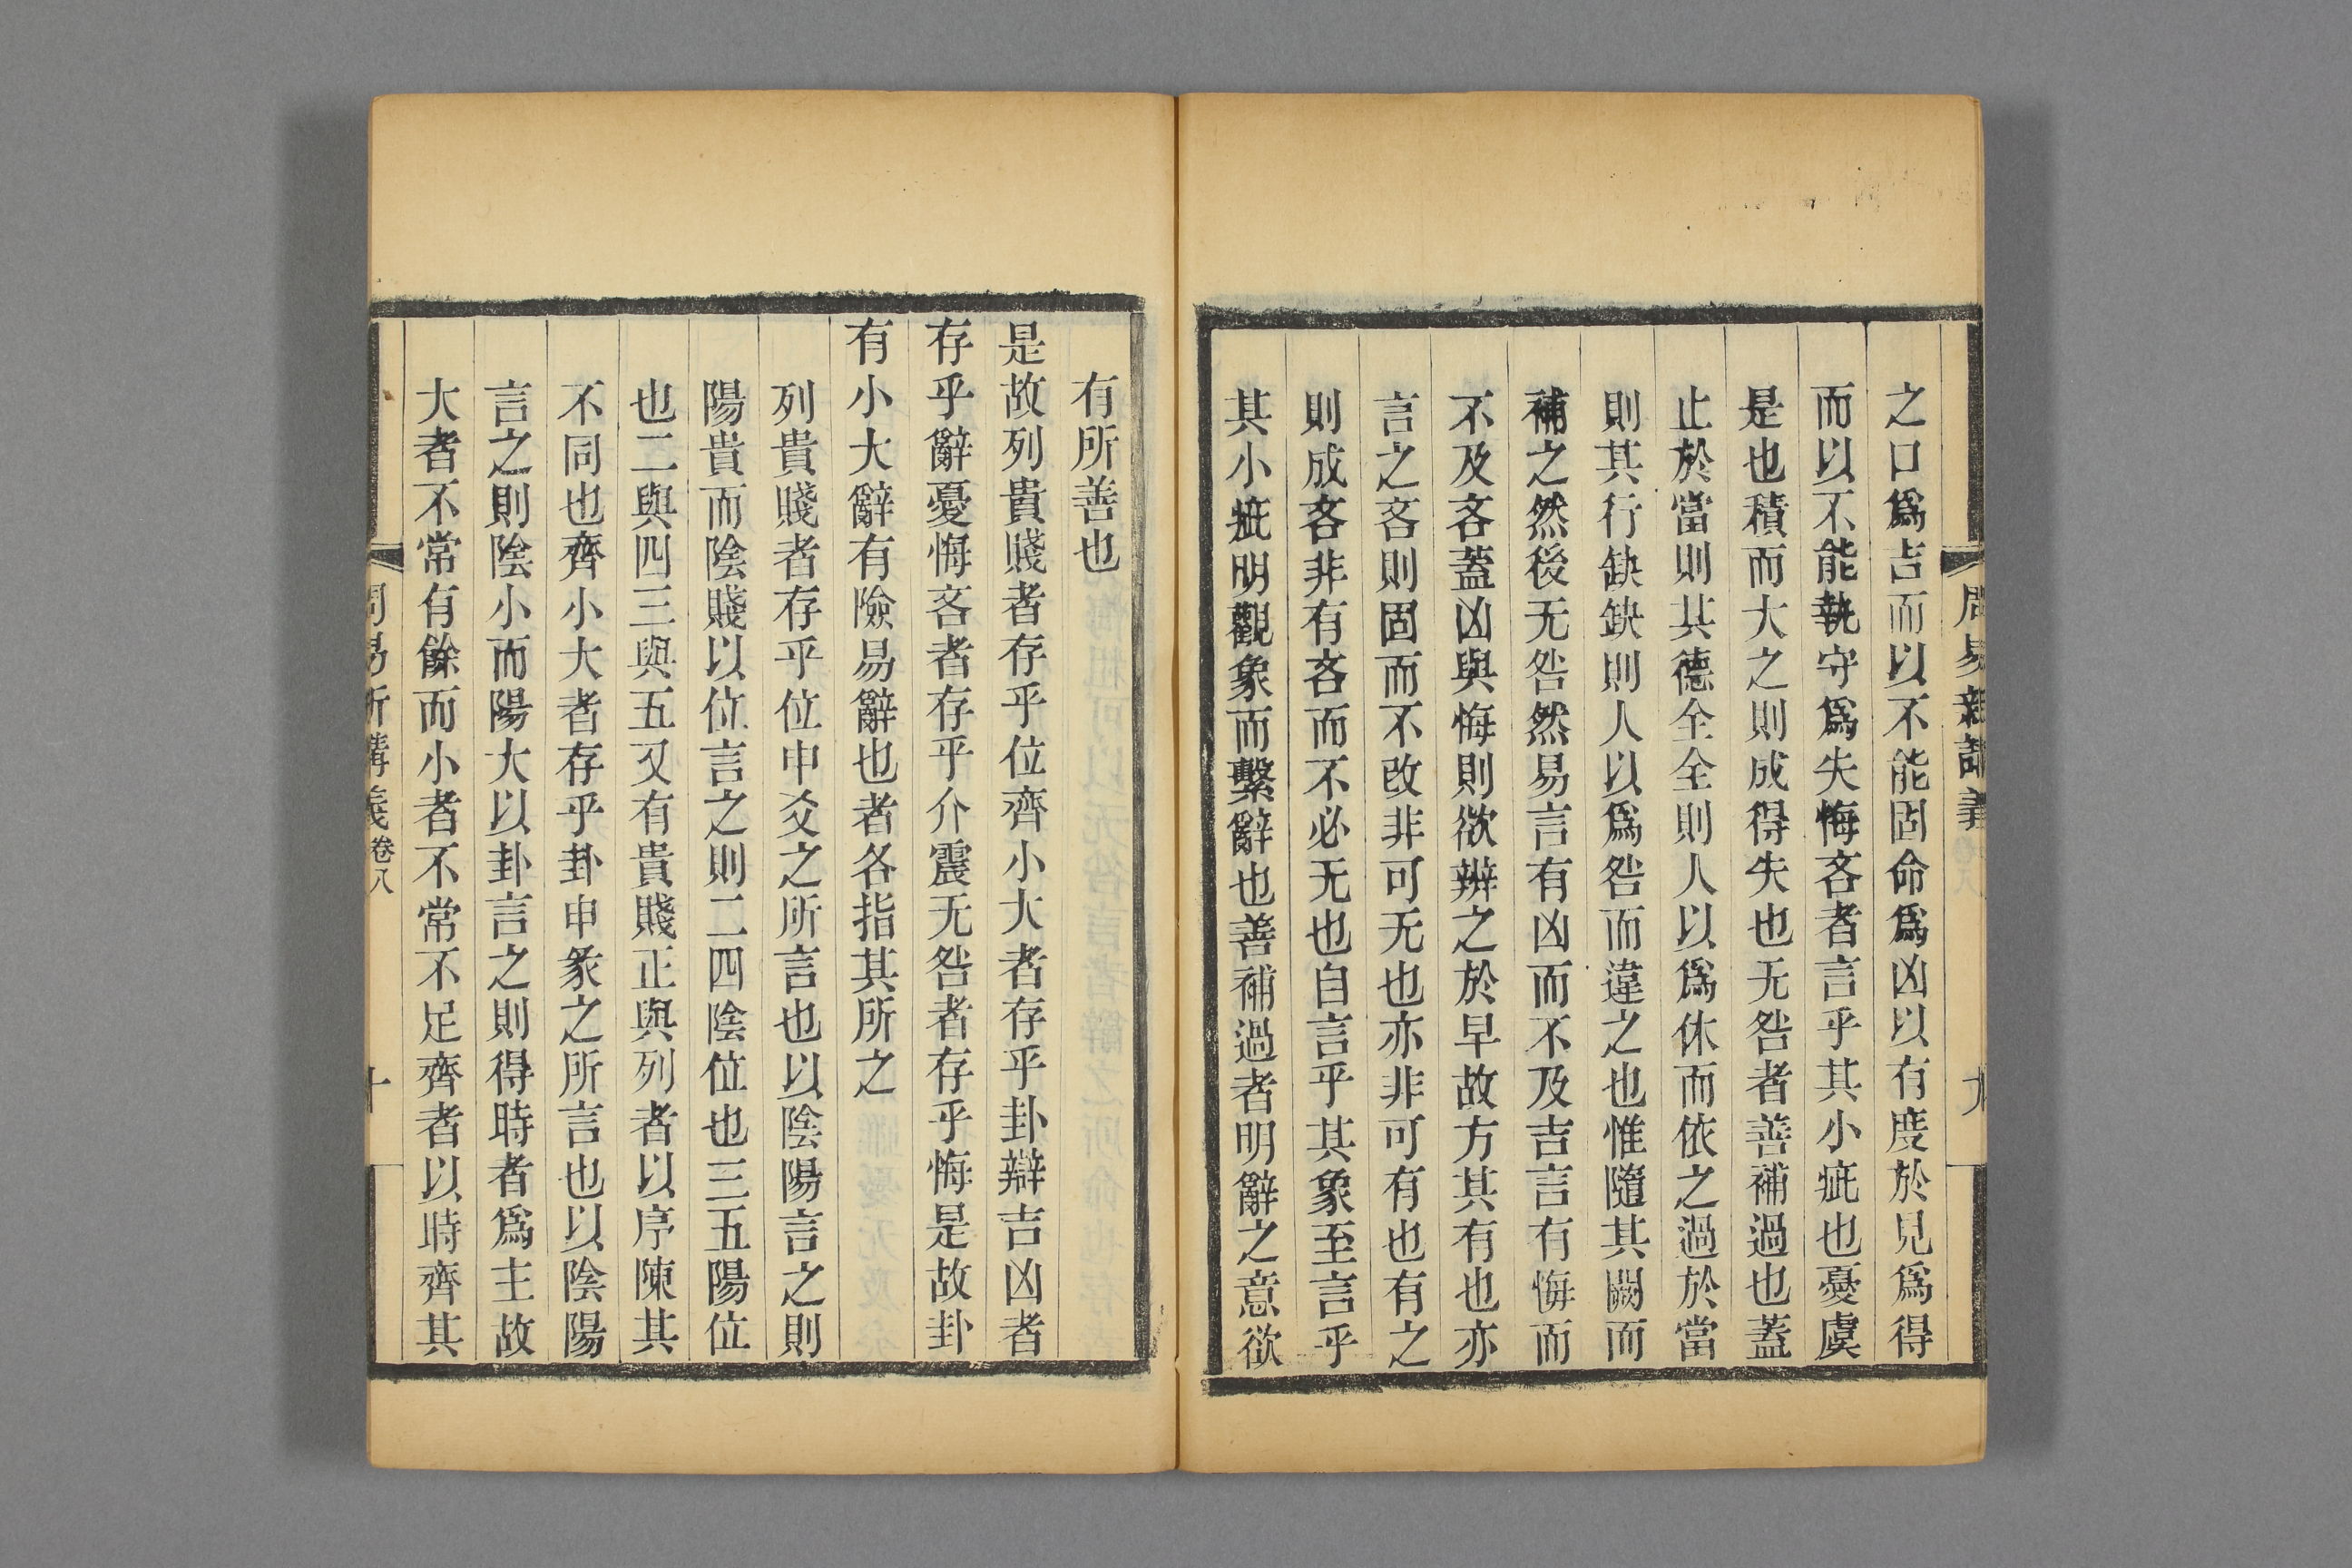 周易新講義
九
之口爲吉而以不能固命爲凶以有度於見爲得
而以不能執守爲失悔吝者言乎其小疵也憂虞
是也積而大之則成得失也无咎者善補過也蓋
止於當則其德全全則人以爲休而依之過於當
則其行缺缺則人以爲咎而違之也惟隨其闕而
補之然後无咎然易言有凶而不及吉言有悔而
不及吝蓋凶與悔則欲辨之於早故方其有也亦
言之吝則固而不改非可无也亦非可有也有之
則成吝非有吝而不必无也自言乎其象至言乎
其小疵明觀象而繫辭也善補過者明辭之意欲
有所善也
是故列貴賤者存乎位齊小大者存乎卦辯吉凶者
存乎辭憂悔吝者存乎介震无咎者存乎悔是故卦
有小大辭有險易辭也者各指其所之
列貴賤者存乎位申爻之所言也以陰陽言之則
陽貴而陰賤以位言之則二四陰位也三五陽位
也二與四三與五又有貴賤正與列者以序陳其
不同也齊小大者存乎卦申彖之所言也以陰陽
言之則陰小而陽大以卦言之則得時者爲主故
大者不常有餘而小者不常不足齊者以時齊其
周易新講義卷八
十